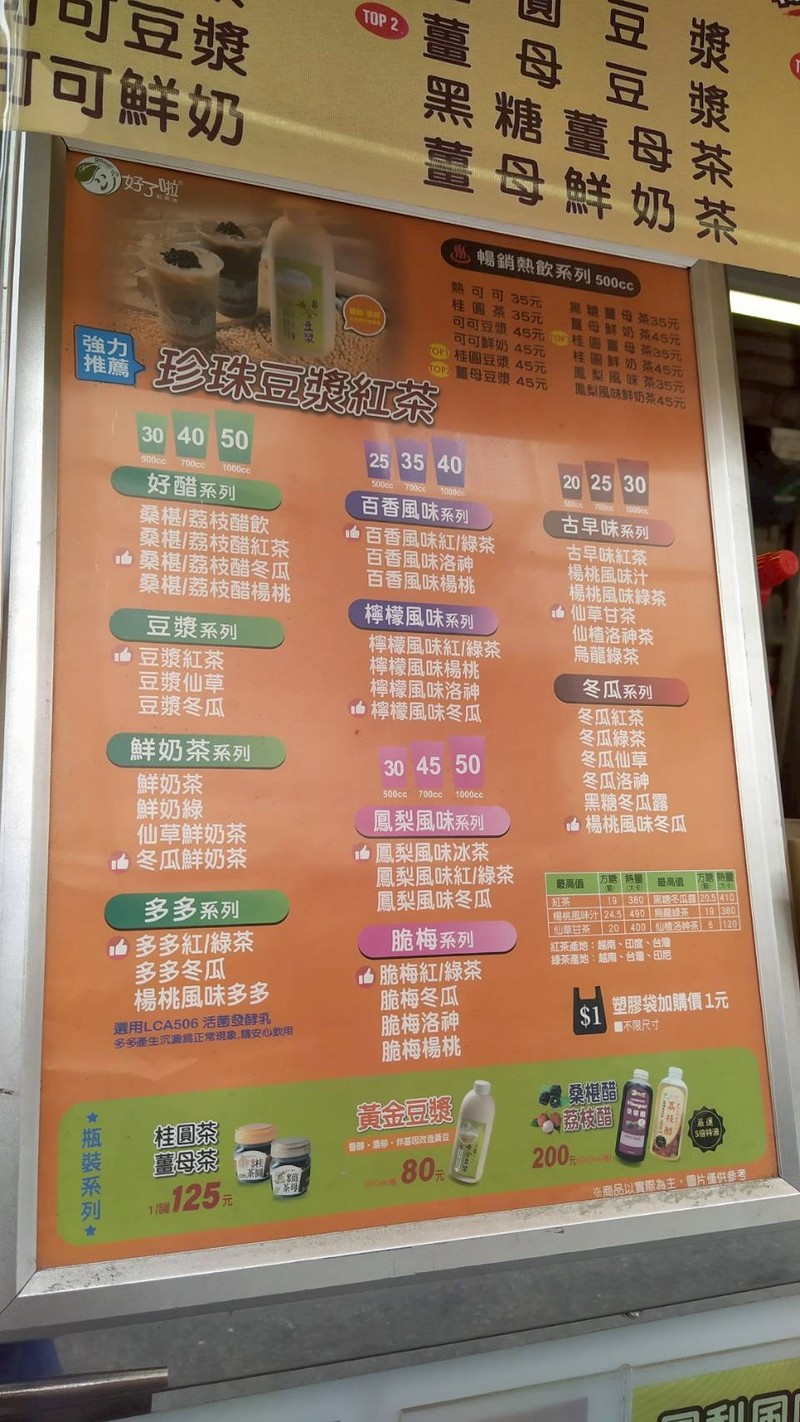 可可豆漿
可可鮮奶
TOP 2
薑母豆漿
黑糖薑母茶
薑母鮮奶茶
好了啦
強力
推薦
珍珠豆漿紅茶
暢銷熱飲系列 500cc
熱可可 35元
桂圓茶 35元
可可豆漿 45元
可可鮮奶 45元
桂圓豆漿 45元
薑母豆漿 45元
黑糖薑母茶35元
薑母鮮奶茶45元
桂圓薑母茶35元
桂圓鮮奶茶45元
鳳梨風味茶35元
鳳梨風味鮮奶茶45元
30 40 50
500cc 700cc 1000cc
好醋系列
桑椹/荔枝醋飲
桑椹/荔枝醋紅茶
桑椹/荔枝醋冬瓜
桑椹/荔枝醋楊桃
豆漿系列
豆漿紅茶
豆漿仙草
豆漿冬瓜
鮮奶茶系列
鮮奶茶
鮮奶綠
仙草鮮奶茶
冬瓜鮮奶茶
多多系列
多多紅/綠茶
多多冬瓜
楊桃風味多多
選用LCA506 活菌發酵乳
多多產生沉澱為正常現象,請安心飲用
25 35 40
500cc 700cc 1000cc
百香風味系列
百香風味紅/綠茶
百香風味洛神
百香風味楊桃
檸檬風味系列
檸檬風味紅/綠茶
檸檬風味楊桃
檸檬風味洛神
檸檬風味冬瓜
30 45 50
500cc 700cc 1000cc
鳳梨風味系列
鳳梨風味冰茶
鳳梨風味紅/綠茶
鳳梨風味冬瓜
脆梅系列
脆梅紅/綠茶
脆梅冬瓜
脆梅洛神
脆梅楊桃
20 25 30
500cc 700cc 1000cc
古早味系列
古早味紅茶
楊桃風味汁
楊桃風味綠茶
仙草甘茶
仙楂洛神茶
烏龍綠茶
冬瓜系列
冬瓜紅茶
冬瓜綠茶
冬瓜仙草
冬瓜洛神
黑糖冬瓜露
楊桃風味冬瓜
最高值 方糖(顆) 熱量(大卡) 最高值 方糖(顆) 熱量(大卡)
紅茶 19 380 黑糖冬瓜露 20.5 410
楊桃風味汁 24.5 490 烏龍綠茶 19 380
仙草甘茶 20 400 仙楂洛神茶 6 120
紅茶產地：越南、印度、台灣
綠茶產地：越南、台灣、印尼
$1 塑膠袋加購價 1元
■不限尺寸
瓶裝系列
桂圓茶
薑母茶
1/罐125元
黃金豆漿
80元
桑椹醋
荔枝醋
200元
嚴選
※商品以實際為主，圖片僅供參考